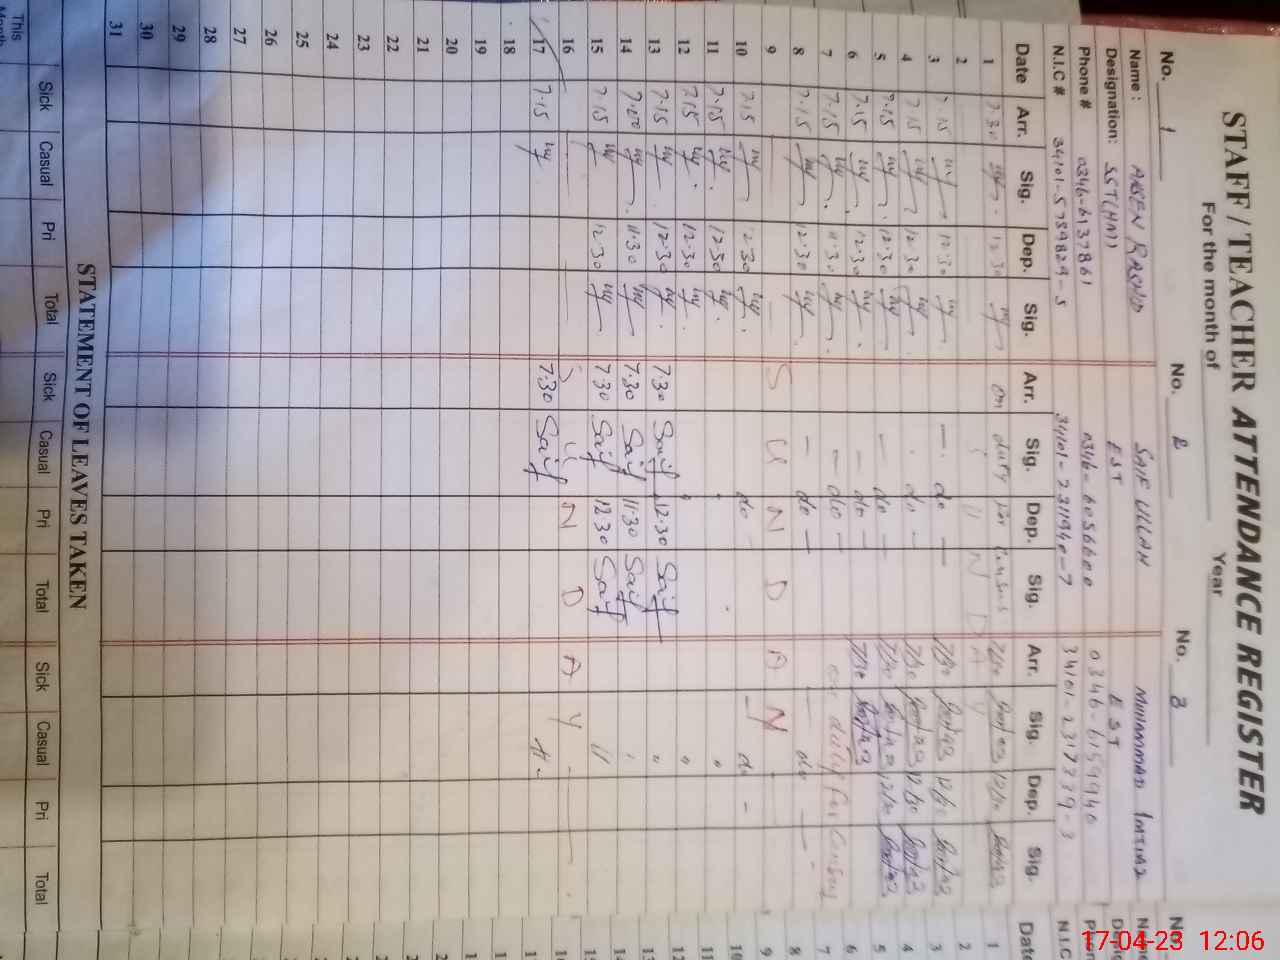 STAFF / TEACHER ATTENDANCE REGISTER
For the month of Year
No. 1 No. 2 No. 3 No.
Name : AHSEN RASHID SAIF ULLAH MUHAMMAD IMTIAZ
Designation: SST(HM) EST EST
Phone # 0346-6137861 0346-6056600 0346-6159940
N.I.C # 34101-5789829-5 34101-2311940-7 34101-2317339-3 N.I.C
Date Arr. Sig. Dep. Sig. Arr. Sig. Dep. Sig. Arr. Sig. Dep. Sig. Date
1 7.30 12.30 on duty for Census 7/30 12/30 1
2 S U N D A Y 2
3 7.15 12.30 — do — 7/30 12/30 3
4 7.15 12.30 do — 7/30 12/30 4
5 7.15 12.30 — do — 7/30 12/30 5
6 7.15 12.30 — do — 7/30 6
7 7.15 11.30 — do — on duty for Census 7
8 7.15 12.30 — do — — do — 8
9 S U N D A Y 9
10 7.15 12.30 do — do - 10
11 7.15 12.30 " " 11
12 7.15 12.30 " " 12
13 7.15 12.30 7.30 Saif 12.30 Saif " 13
14 7.00 11.30 7.30 Saif 11.30 Saif " 14
15 7.15 12.30 7.30 Saif 12.30 Saif " 15
16 S U N D A Y 16
17 7.15 7:30 Saif 17
18
19
20
21
22
23
24
25
26
27
28
29
30
31
STATEMENT OF LEAVES TAKEN
Sick Casual Pri Total Sick Casual Pri Total Sick Casual Pri Total
This
Month
17-04-23 12:06